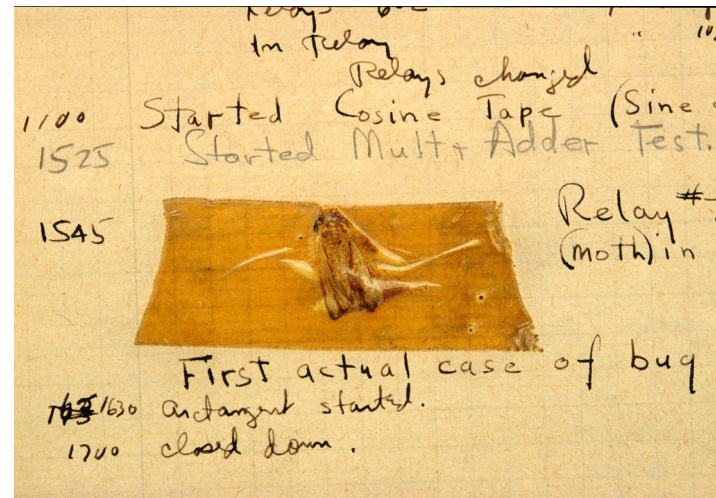 In Relay
Relays changed
1100 Started Cosine Tape (Sine
1525 Started Mult+ Adder Test.
1545 Relay #
(moth) in
First actual case of bug
1630 arctangent started.
1700 closed down.